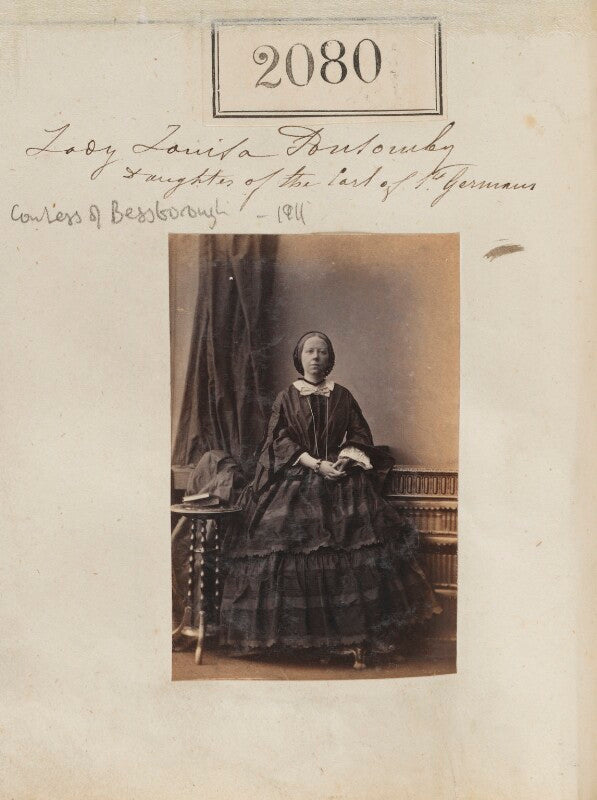 2080
Lady Louisa Ponsomby
Daughter of the Earl of St. Germans
Countess of Bessborough - 1911